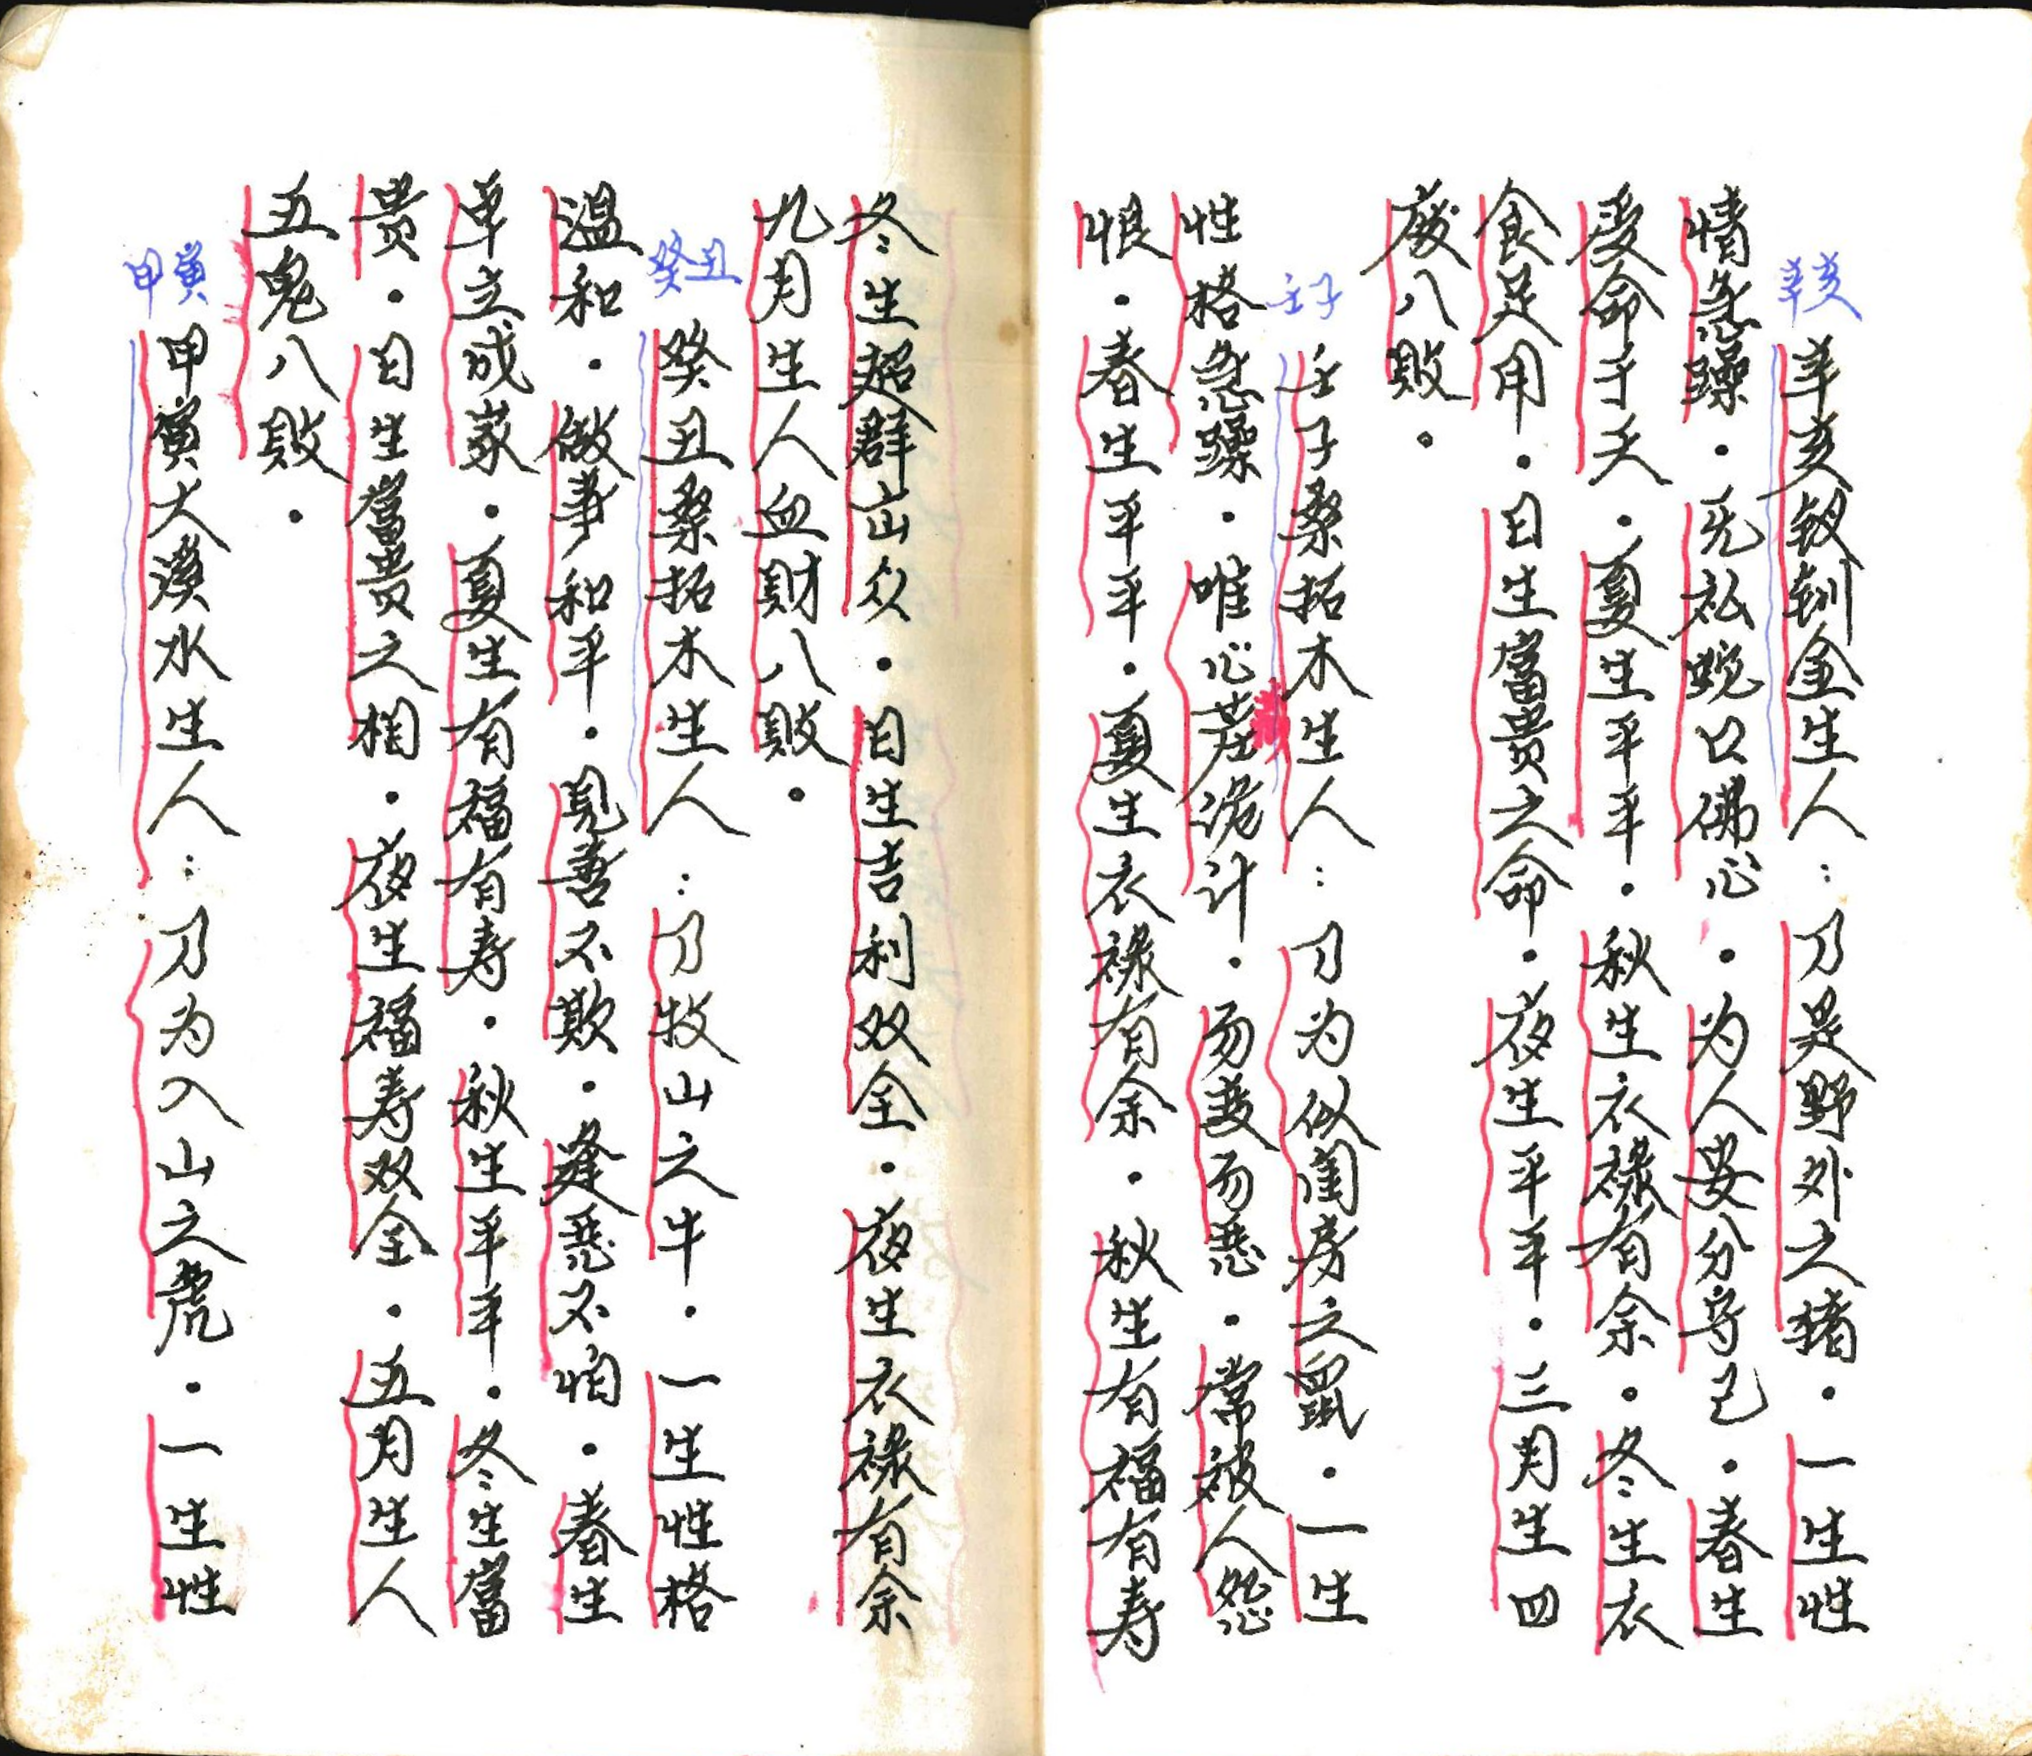 辛亥
辛亥钗钏金生人：乃是野外之猪．一生性
情急躁．无私蛇口佛心．为人安分守己．春生
受命于天．夏生平平．秋生衣禄有余．冬生衣
食足用．日生富贵之命．夜生平平．三月生四
废八败．
壬子
壬子桑拓木生人：乃为似闺房之鼠．一生
性格急躁．唯心茬诡计．勿变勿恶．常被人怨
恨．春生平平．夏生衣禄有余．秋生有福有寿
冬生超群山众．日生吉利双全．夜生衣禄有余
九月生人血财八败．
癸丑
癸丑桑拓木生人：乃牧山之牛．一生性格
温和．做事和平．见善不欺．逢恶不怕．春生
单立成家．夏生有福有寿．秋生平平．冬生富
贵．日生富贵之相．夜生福寿双全．五月生人
五鬼八败．
甲寅
甲寅大溪水生人：乃为入山之虎．一生性